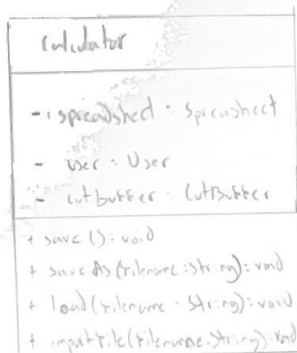 Calculator
- spreadsheet : Spreadsheet
- user : User
- cutbuffer : CutBuffer
+ save () : void
+ saveAs (filename : String) : void
+ load (filename : String) : void
+ importFile (filename : String) : void